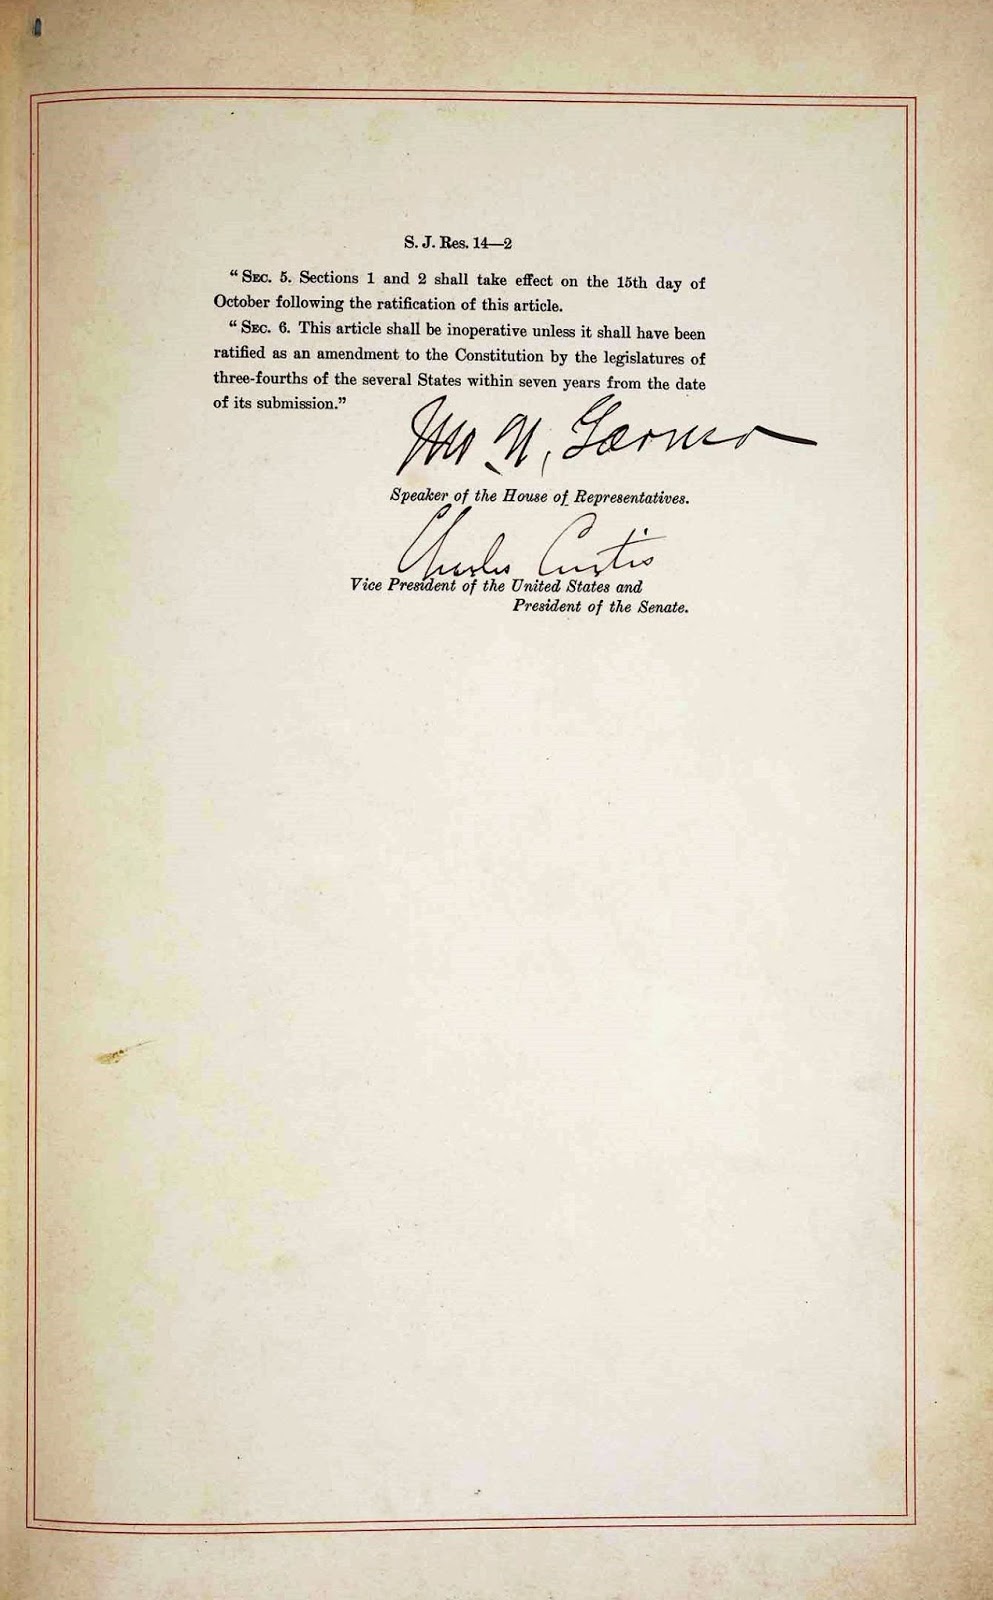 S. J. Res. 14—2
“ SEC. 5. Sections 1 and 2 shall take effect on the 15th day of
October following the ratification of this article.
“ SEC. 6. This article shall be inoperative unless it shall have been
ratified as an amendment to the Constitution by the legislatures of
three-fourths of the several States within seven years from the date
of its submission.”
Jno N. Garner
Speaker of the House of Representatives.
Charles Curtis
Vice President of the United States and
President of the Senate.